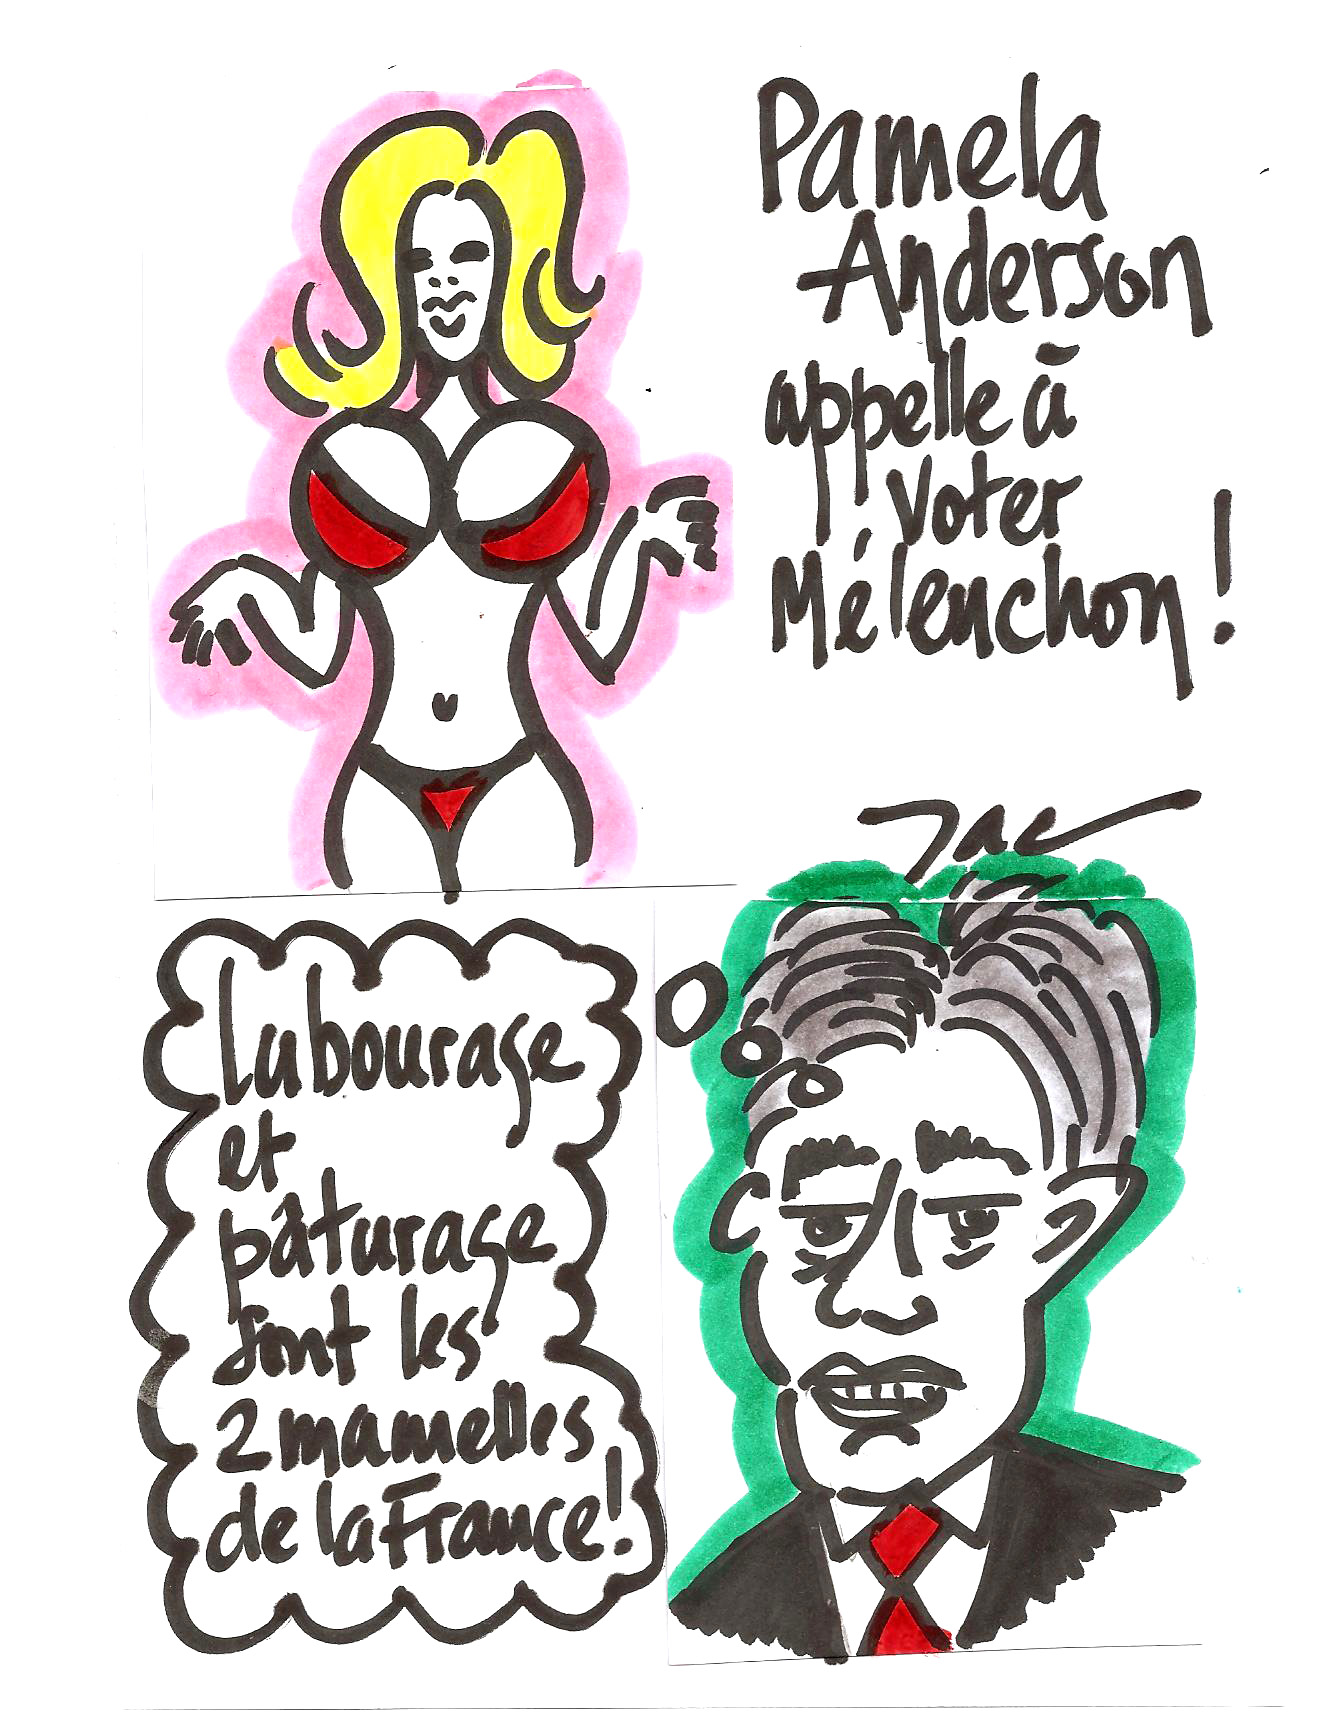 Pamela
Anderson
appelle à
voter
Mélenchon !
Jac
Labourage
et
pâturage
sont les
2 mamelles
de la France !